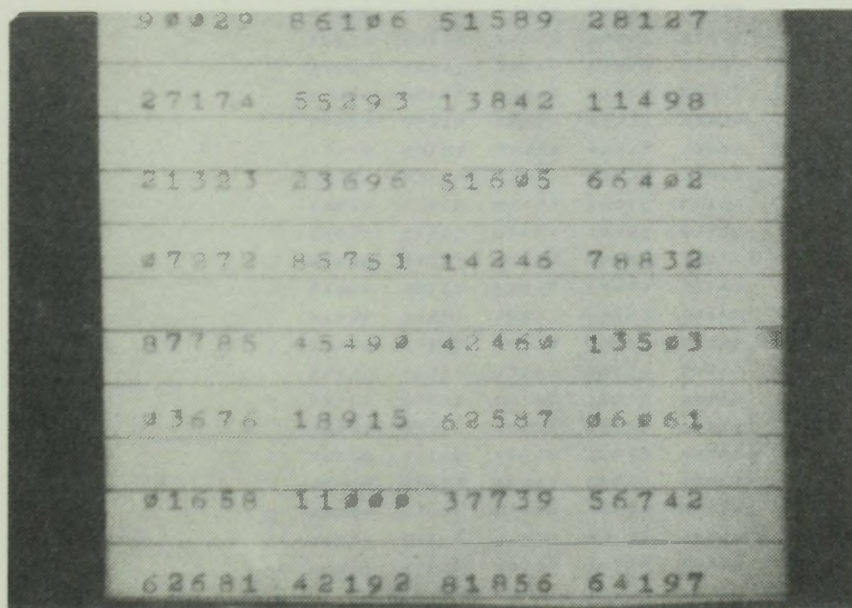 90029 86106 51589 28127
27174 55293 13842 11498
21323 23696 51605 66402
07272 85751 14246 78832
87785 45490 42460 13503
03676 18915 62587 06061
01658 11000 37739 56742
62681 42192 81856 64197